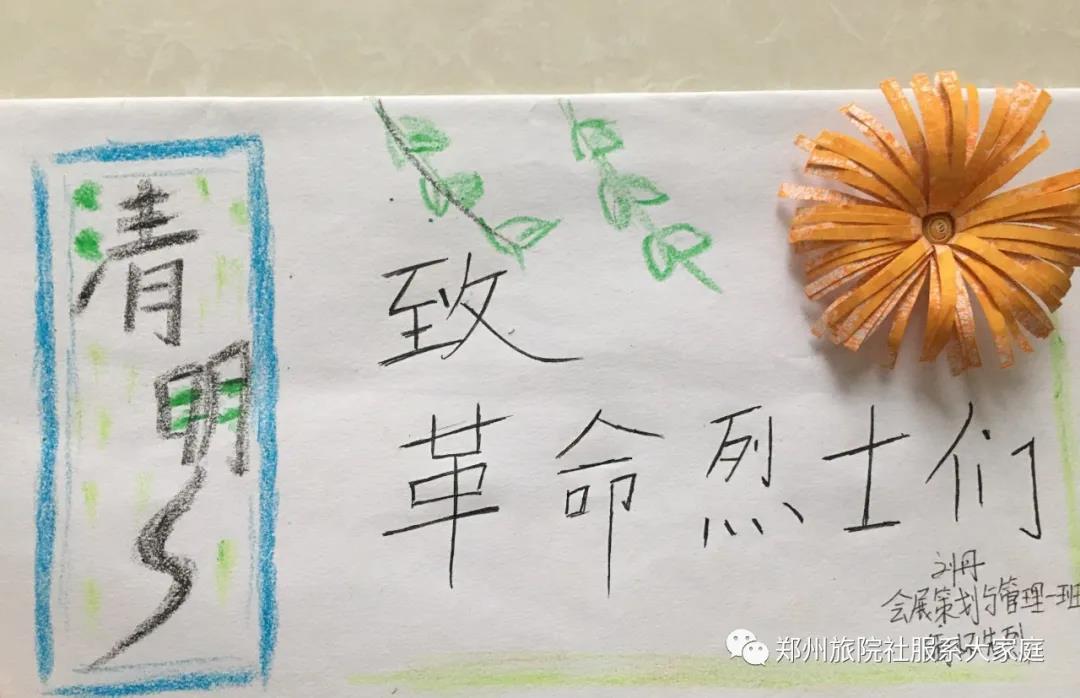 清明
致
革命烈士们
刘丹
会展策划与管理一班
郑州旅院社服系大家庭